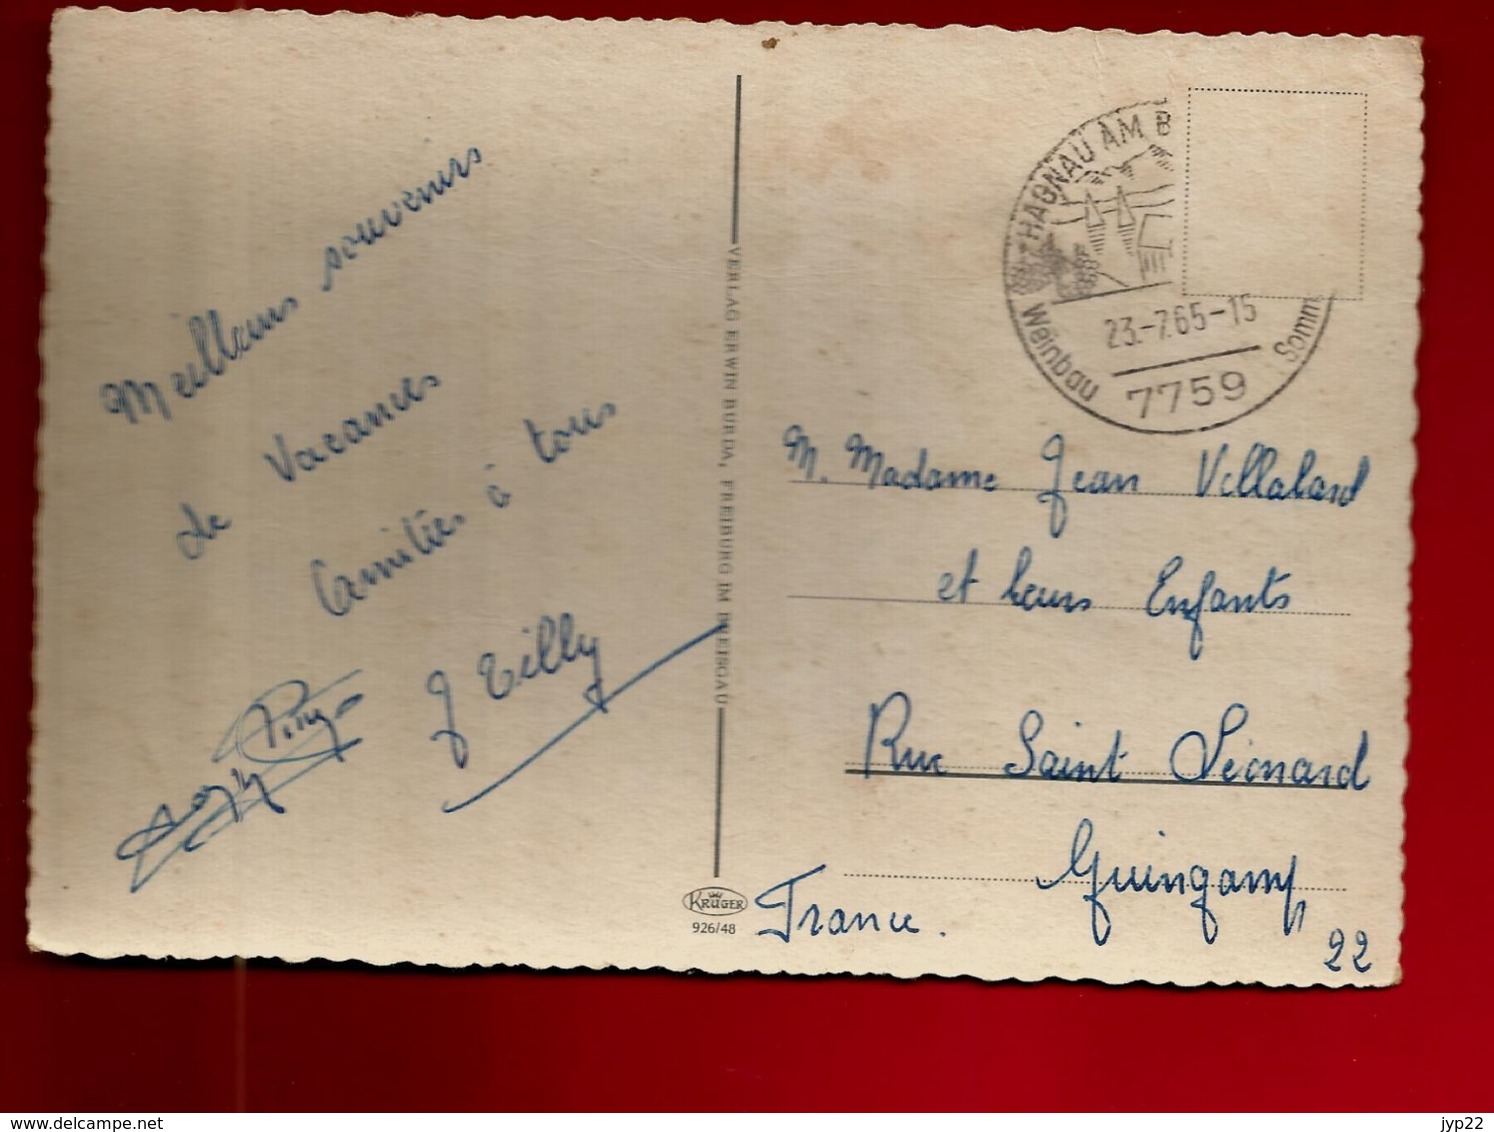 Meilleurs souvenirs
de Vacances
Amitiés à tous
J Tilly
VERLAG ERWIN BURDA, FREIBURG IM BREISGAU
KRÜGER
926/48
HAGNAU AM B
23.-7.65-15
Weinbau
Somm
7759
M. Madame Jean Villalard
et leurs Enfants
Rue Saint Léonard
Guingamp
France.
22
www.delcampe.net
jyp22